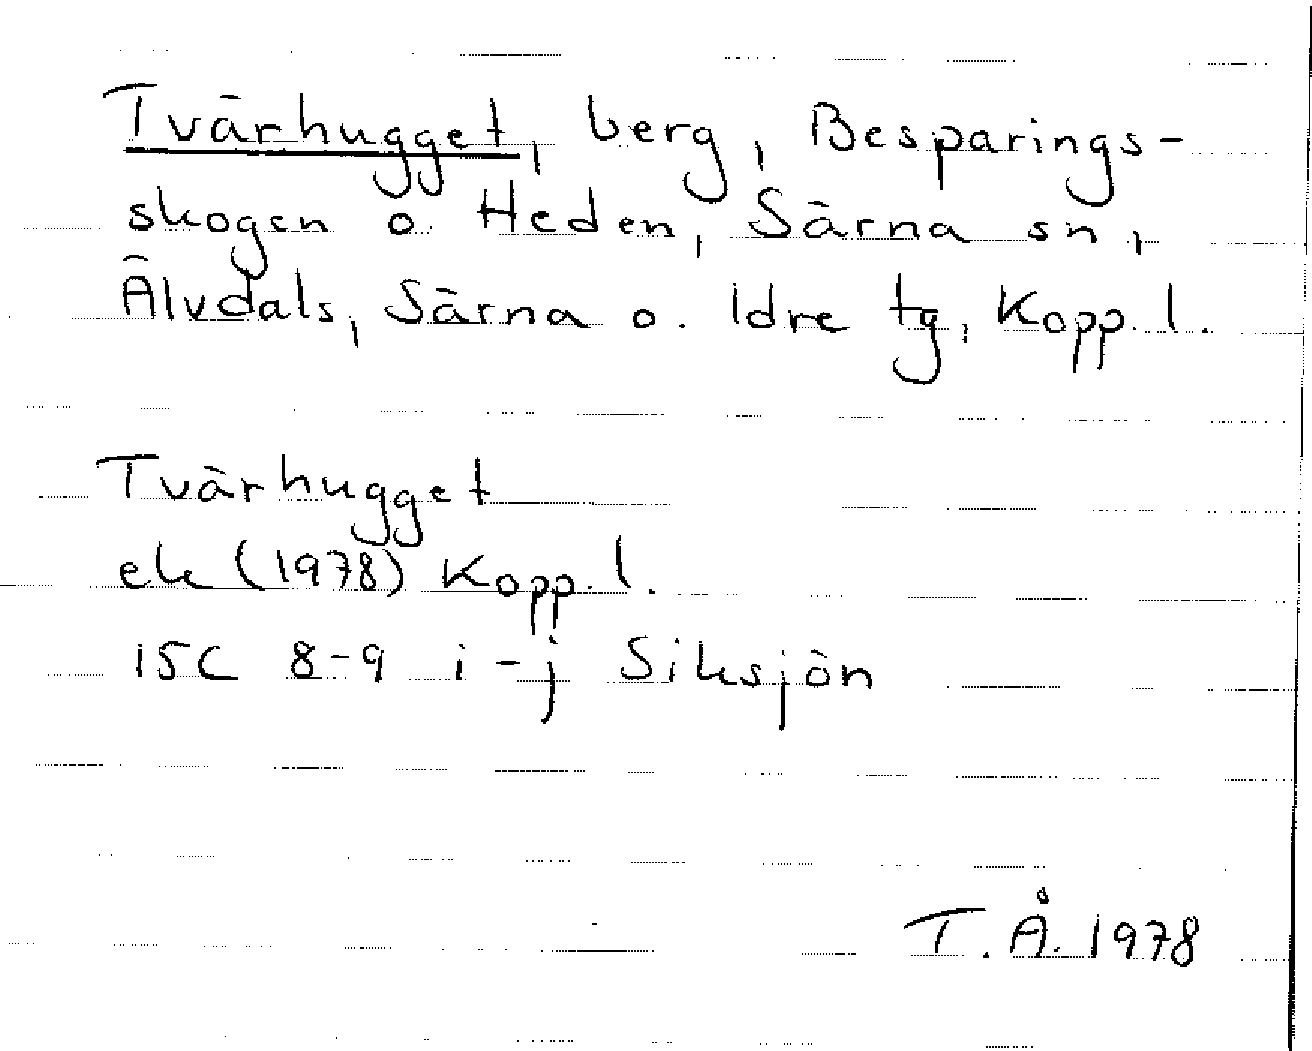 Tvärhugget, berg, Besparings-
skogen o. Heden, Särna sn,
Älvdals, Särna o. Idre tg, Kopp. l.
Tvärhugget
ek (1978) Kopp. l.
15C 8-9 i-j Siksjön
T. Å. 1978